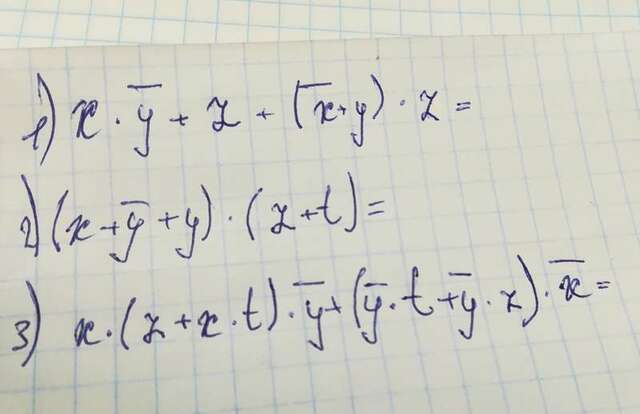 1) x · y̅ + z + (x̅+y) · z =
2) (x + y̅ + y) · (z + t) =
3) x · (z + x · t) · y̅ + (y̅ · t + y̅ · z) · x̅ =